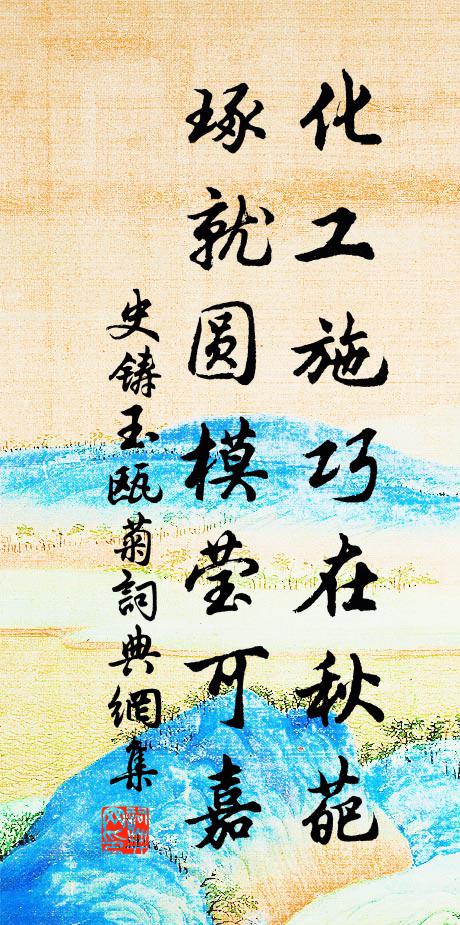 化工施巧在秋葩
琢就圆模莹可嘉
史鑄玉瓯菊詞典網集